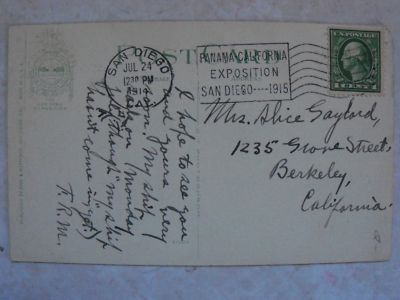 POST CARD
SAN DIEGO
JUL 24
1230 PM
1914
PANAMA-CALIFORNIA
EXPOSITION
SAN DIEGO----1915
1 CENT 1
I hope to see you
and yours very
soon. My ship
Monday
though "my ship
hasn't come in" yet.)
Mrs. Alice Gaylord,
1235 Grove Street,
Berkeley,
California.